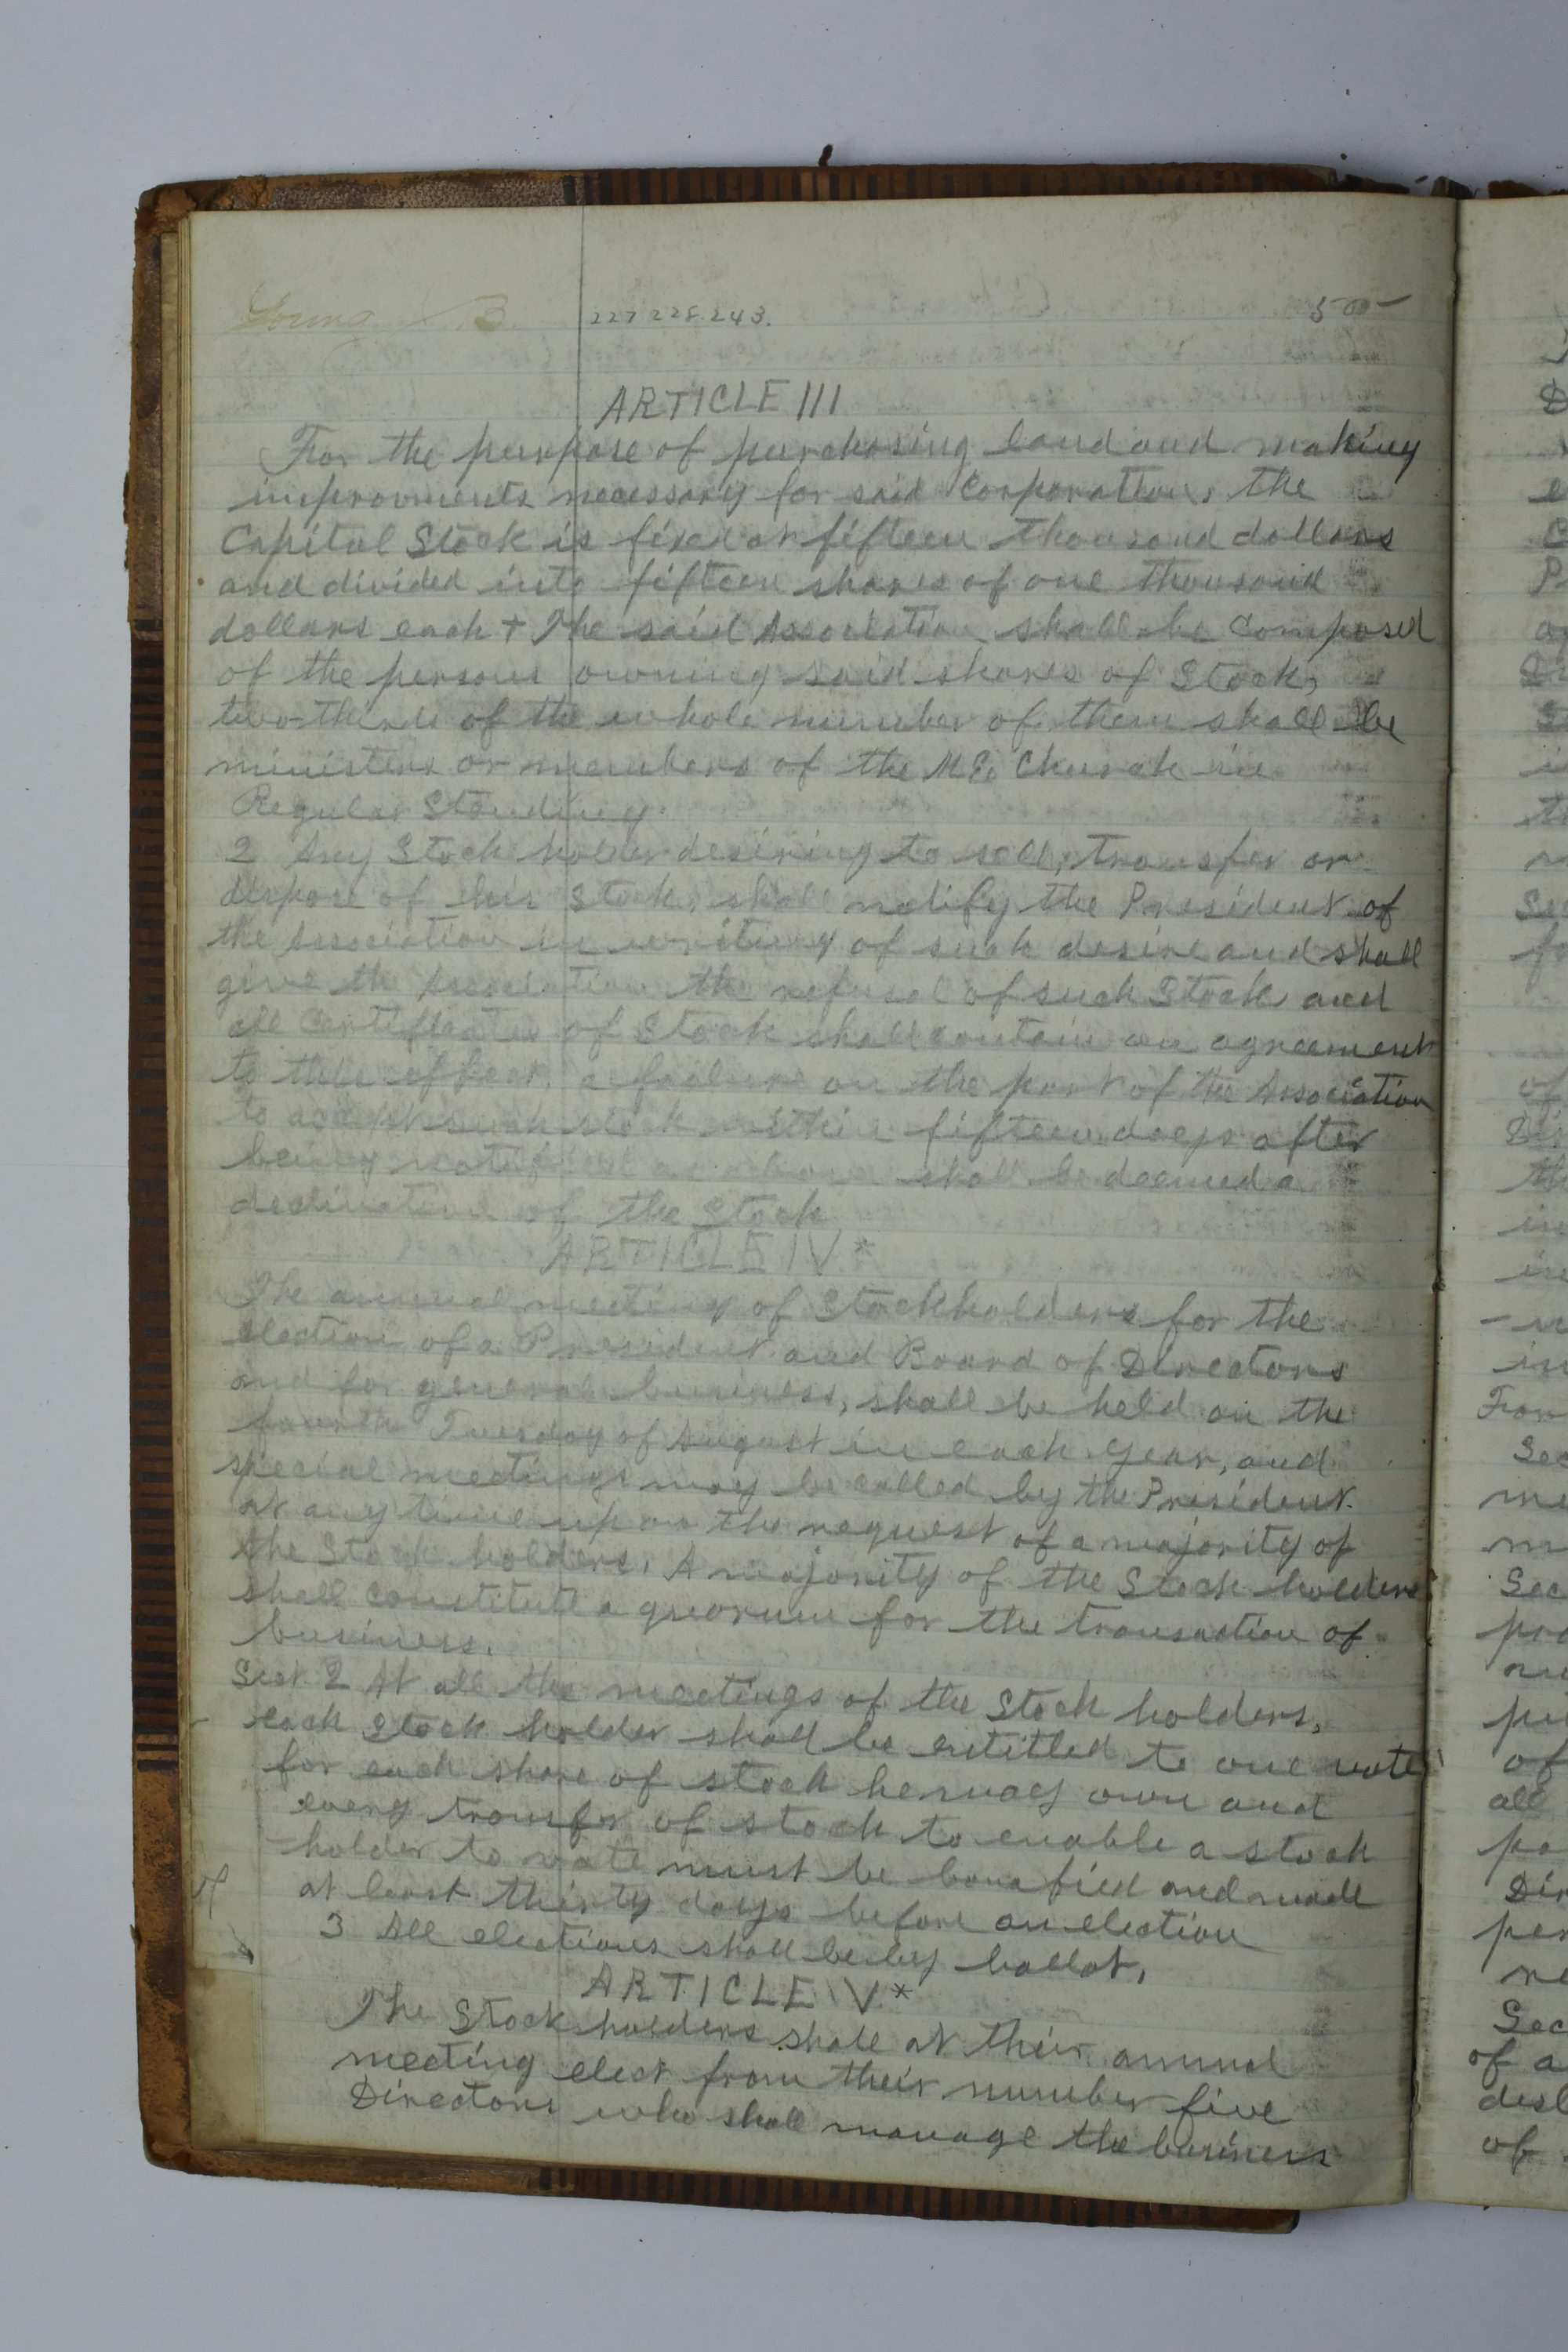 Young B 227 228. 243. 500
ARTICLE III
For the purpose of purchasing land and making
improvments necessary for said Corporation, the
Capital Stock is fixed at fifteen thousand dollars
and divided into fifteen shares of one thousand
dollars each + The said Association shall be Composed
of the persons owning said shares of Stock,
two-thirds of the whole number of them shall be
ministers or members of the M.E. Church in
Regular Standing.
2 Any Stock holder desiring to sell, transfer or
dispose of his Stock, shall notify the President of
the Association in writing of such desire and shall
give the Association the refusal of such Stock and
all Certificates of Stock shall contain an agreement
to this effect, a failure on the part of the Association
to accept such stock within fifteen days after
being notified as above shall be deemed a
declination of the Stock
ARTICLE IV *
The annual meeting of Stockholders for the
election of a President and Board of Directors
and for general business, shall be held on the
fourth Tuesday of August in each year, and
special meetings may be called by the President
at any time upon the request of a majority of
the Stock holders. A majority of the Stock holders
shall constitute a quorum for the transaction of
business.
Sect 2 At all the meetings of the Stock holders,
each Stock holder shall be entitled to one vote
for each share of stock he may own and
every transfr of stock to enable a stock
holder to vote must be bonafied and made
at least thirty days before an election
3 All elections shall be by ballot.
ARTICLE V *
The Stock holders shall at their annual
meeting elect from their number five
Directors who shall manage the business